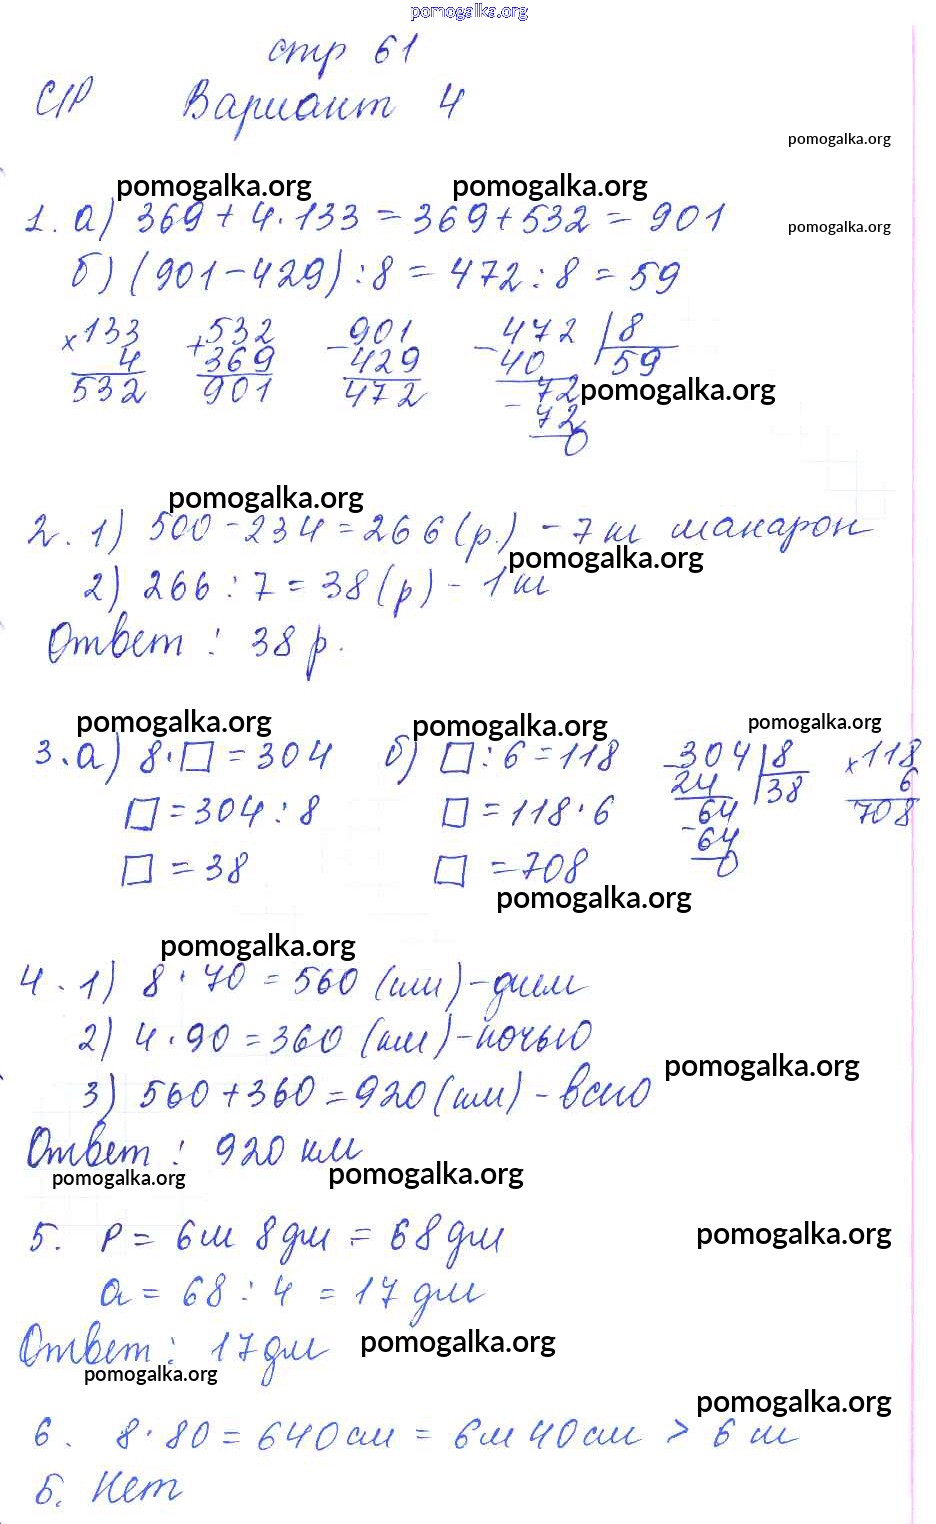 pomogalka.org
стр 61
С/Р Вариант 4
pomogalka.org
pomogalka.org pomogalka.org
1. а) 369 + 4 · 133 = 369 + 532 = 901
pomogalka.org
б) (901 - 429) : 8 = 472 : 8 = 59
× 133 + 532 - 901 - 472 | 8
4 369 429 40 59
532 901 472 72
pomogalka.org
- 72
0
pomogalka.org
2. 1) 500 - 234 = 266 (р.) - 7 п макарон
pomogalka.org
2) 266 : 7 = 38 (р) - 1 п
Ответ : 38 р.
pomogalka.org pomogalka.org pomogalka.org
3. а) 8 · □ = 304 б) □ : 6 = 118 - 304 | 8 × 118
24 38 6
□ = 304 : 8 □ = 118 · 6 64 708
- 64
□ = 38 □ = 708 0
pomogalka.org
pomogalka.org
4. 1) 8 · 70 = 560 (км) - днем
2) 4 · 90 = 360 (км) - ночью
pomogalka.org
3) 560 + 360 = 920 (км) - всего
Ответ : 920 км
pomogalka.org pomogalka.org
5. P = 6 м 8 дм = 68 дм
pomogalka.org
a = 68 : 4 = 17 дм
Ответ : 17 дм
pomogalka.org
pomogalka.org
pomogalka.org
6. 8 · 80 = 640 см = 6 м 40 см > 6 м
Б. Нет